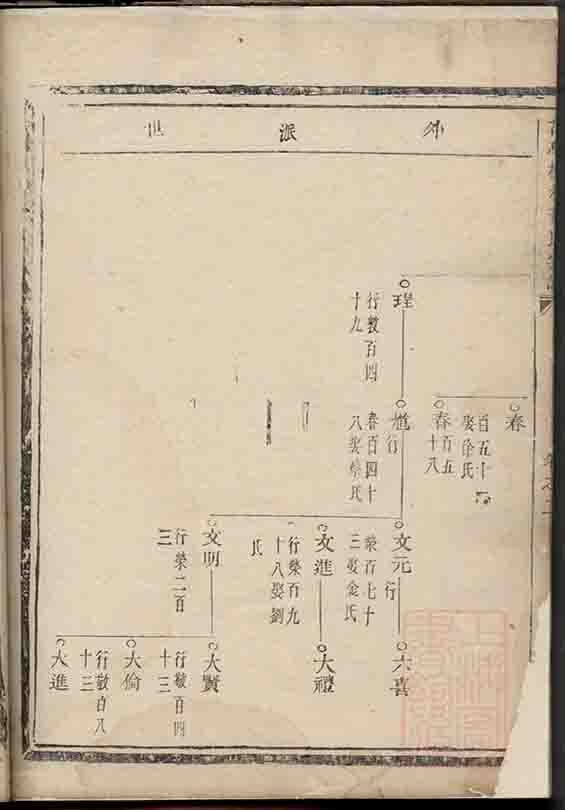 外派世
珵
行敬百四
十九
春
百五十
娶徐氏
春百五
十八
行
春百四十
八娶徐氏
文元
行
榮百七十
三娶金氏
文進
行榮百九
十八娶劉
氏
文明
行榮二百
三
大喜
大禮
大賢
行敬百四
十三
大倫
行敬百八
十三
大進